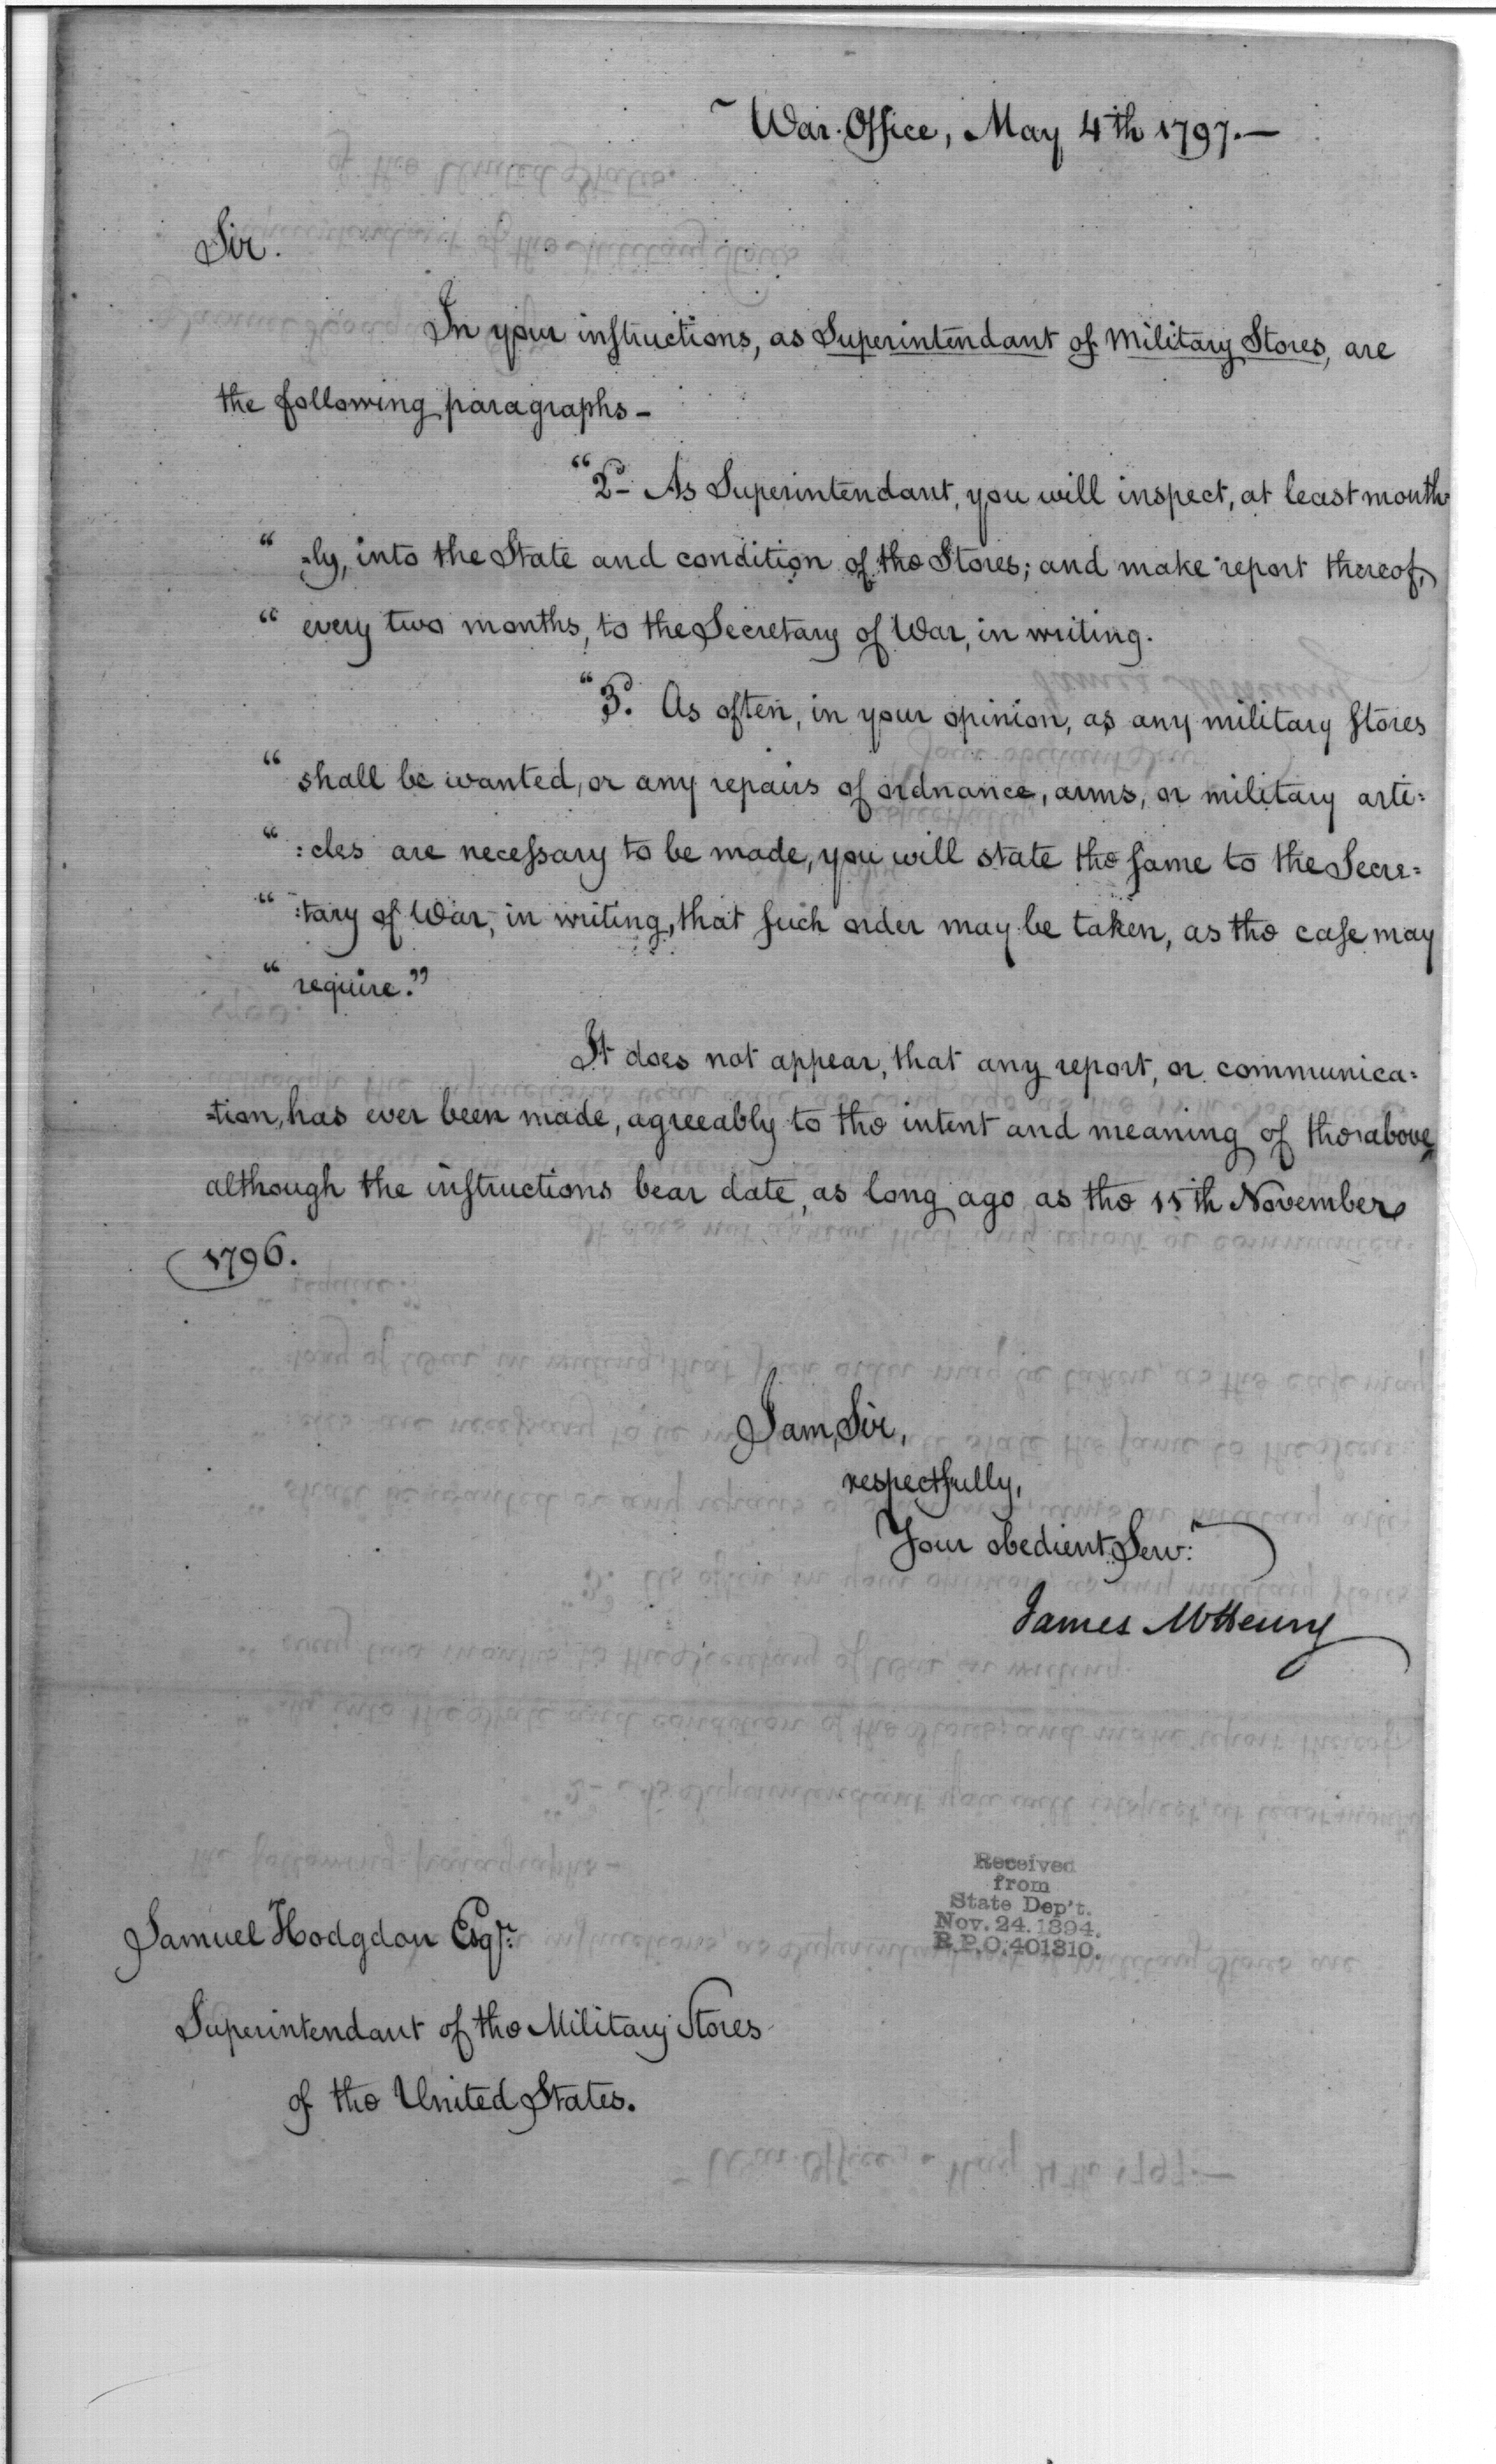 War Office, May 4th 1797.—
Sir.
In your instructions, as Superintendant of Military Stores, are
the following paragraphs-
"2d- As Superintendant, you will inspect, at least month-
" =ly, into the State and condition of the Stores; and make report thereof,
" every two months, to the Secretary of War, in writing.
"3d. As often, in your opinion, as any military stores
" shall be wanted, or any repairs of ordnance, arms, or military arti=
" :cles are necessary to be made, you will state the same to the Secre=
" :tary of War, in writing, that such order may be taken, as the case may
" require."
It does not appear, that any report, or communica=
=tion, has ever been made, agreeably to the intent and meaning of the above,
although the instructions bear date, as long ago as the 11th November
1796.
I am, Sir,
respectfully,
Your obedient Servt.
James McHenry
Received
from
State Dep't.
Nov. 24. 1894.
R.P.O. 401310.
Samuel Hodgdon Esqr.
Superintendant of the Military Stores
of the United States.